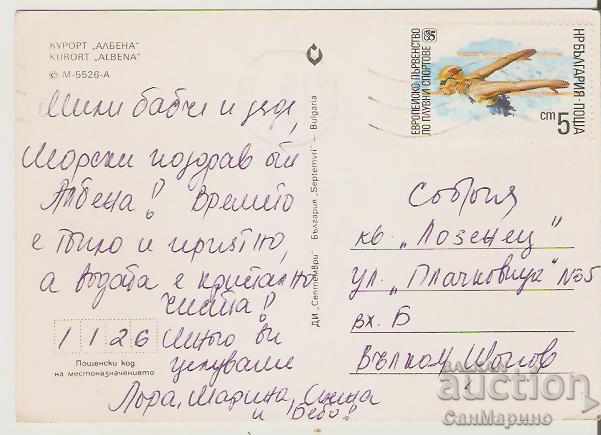 КУРОРТ „АЛБЕНА"
KURORT „ALBENA"
© М-5526-А
Мили бабче и дядо,
Морски поздрав от
Албена! Времето
е топло и приятно,
а водата е кристално
чиста!
1126 Много ви
целуваме
Лора, Марина,
и Бебо!
Пощенски код
на местоназначението
ДИ „Септември" България „Septemvri" – Bulgaria
ЕВРОПЕЙСКО ПЪРВЕНСТВО
ПО ПЛУВНИ СПОРТОВЕ
85
ст 5
НР БЪЛГАРИЯ • ПОЩА
София
кв. „Лозенец"
ул. „Плачковица" №35
вх. Б
Вълкан
BALKAN
auction
СанМарино